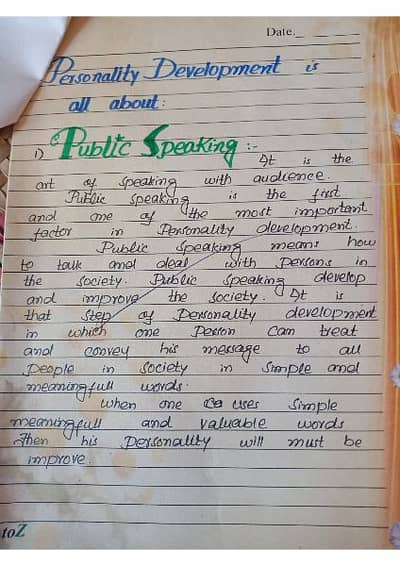 Date.
Personality Development is
all about:
1) Public Speaking :-
It is the
art of speaking with audience.
Public speaking is the first
and one of the most important
factor in Personality development.
Public speaking means how
to talk and deal with persons in
the society. Public speaking develop
and improve the society. It is
that step of Personality development
in which one Person can treat
and convey his message to all
people in society in simple and
meaningfull words.
When one uses simple
meaningfull and valuable words
then his personality will must be
improve.
toZ